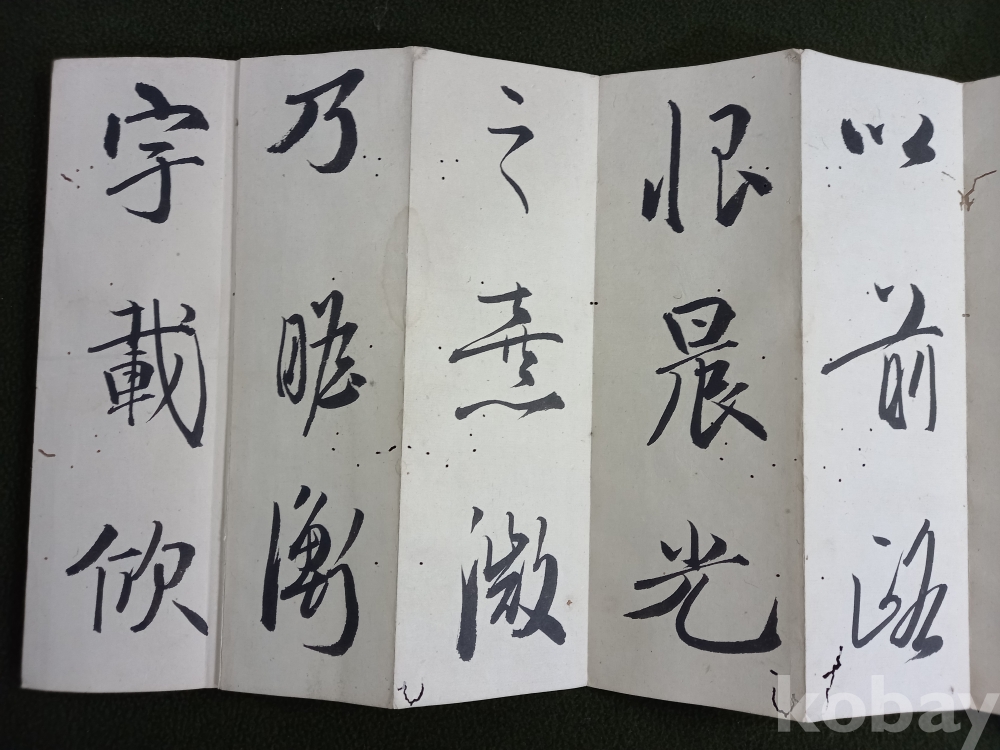 以前路
恨晨光
之熹微
乃瞻衡
宇載欣
kobay